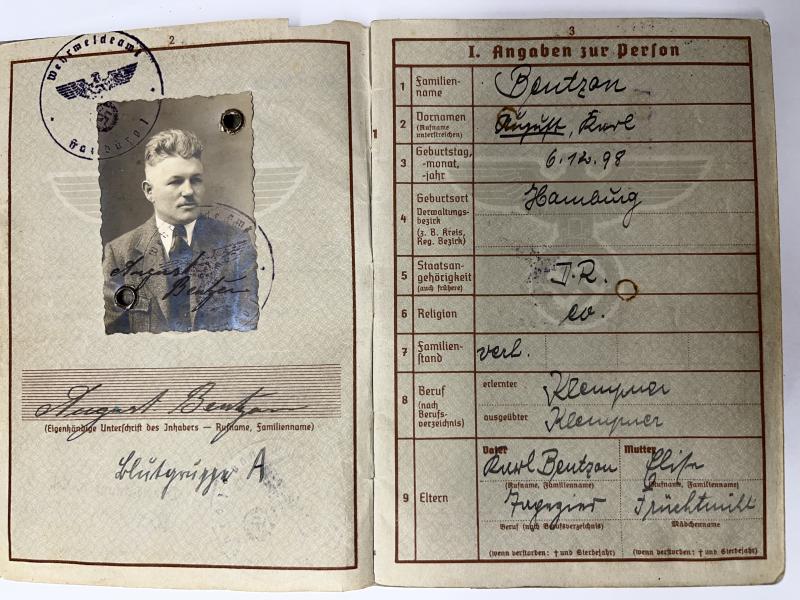 2
Wehrmeldeamt
Hamburg 1
August
Bentzon
August Bentzon
(Eigenhändige Unterschrift des Inhabers — Rufname, Familienname)
Blutgruppe A
3
I. Angaben zur Person
1 Familien-
name
Bentzon
2 Vornamen
(Rufname
unterstreichen)
August, Karl
3 Geburtstag,
-monat,
-jahr
6.12.98
4 Geburtsort
Verwaltungs-
bezirk
(z. B. Kreis,
Reg. Bezirk)
Hamburg
5 Staatsan-
gehörigkeit
(auch frühere)
D.R.
6 Religion
ev.
7 Familien-
stand
verh.
8 Beruf
(nach
Berufs-
verzeichnis)
erlernter Klempner
ausgeübter Klempner
9 Eltern
Vater
Karl Bentzon
(Rufname, Familienname)
Beruf (nach Berufsverzeichnis)
(wenn verstorben: † und Sterbejahr)
Mutter
Elise
(Rufname, Familienname)
Mädchenname
(wenn verstorben: † und Sterbejahr)